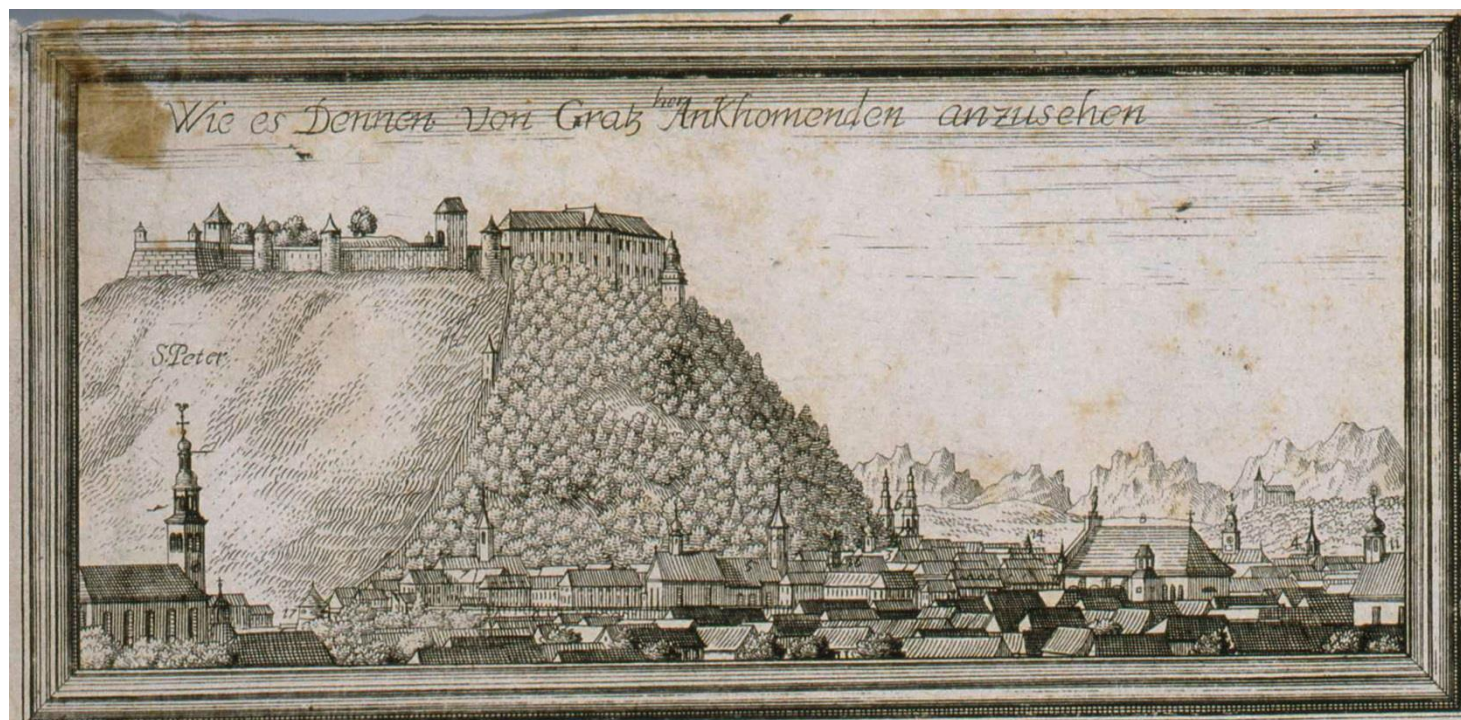 Wie es Dennen von Gratz her Ankhomenden anzusehen
S. Peter
14
4
11
5